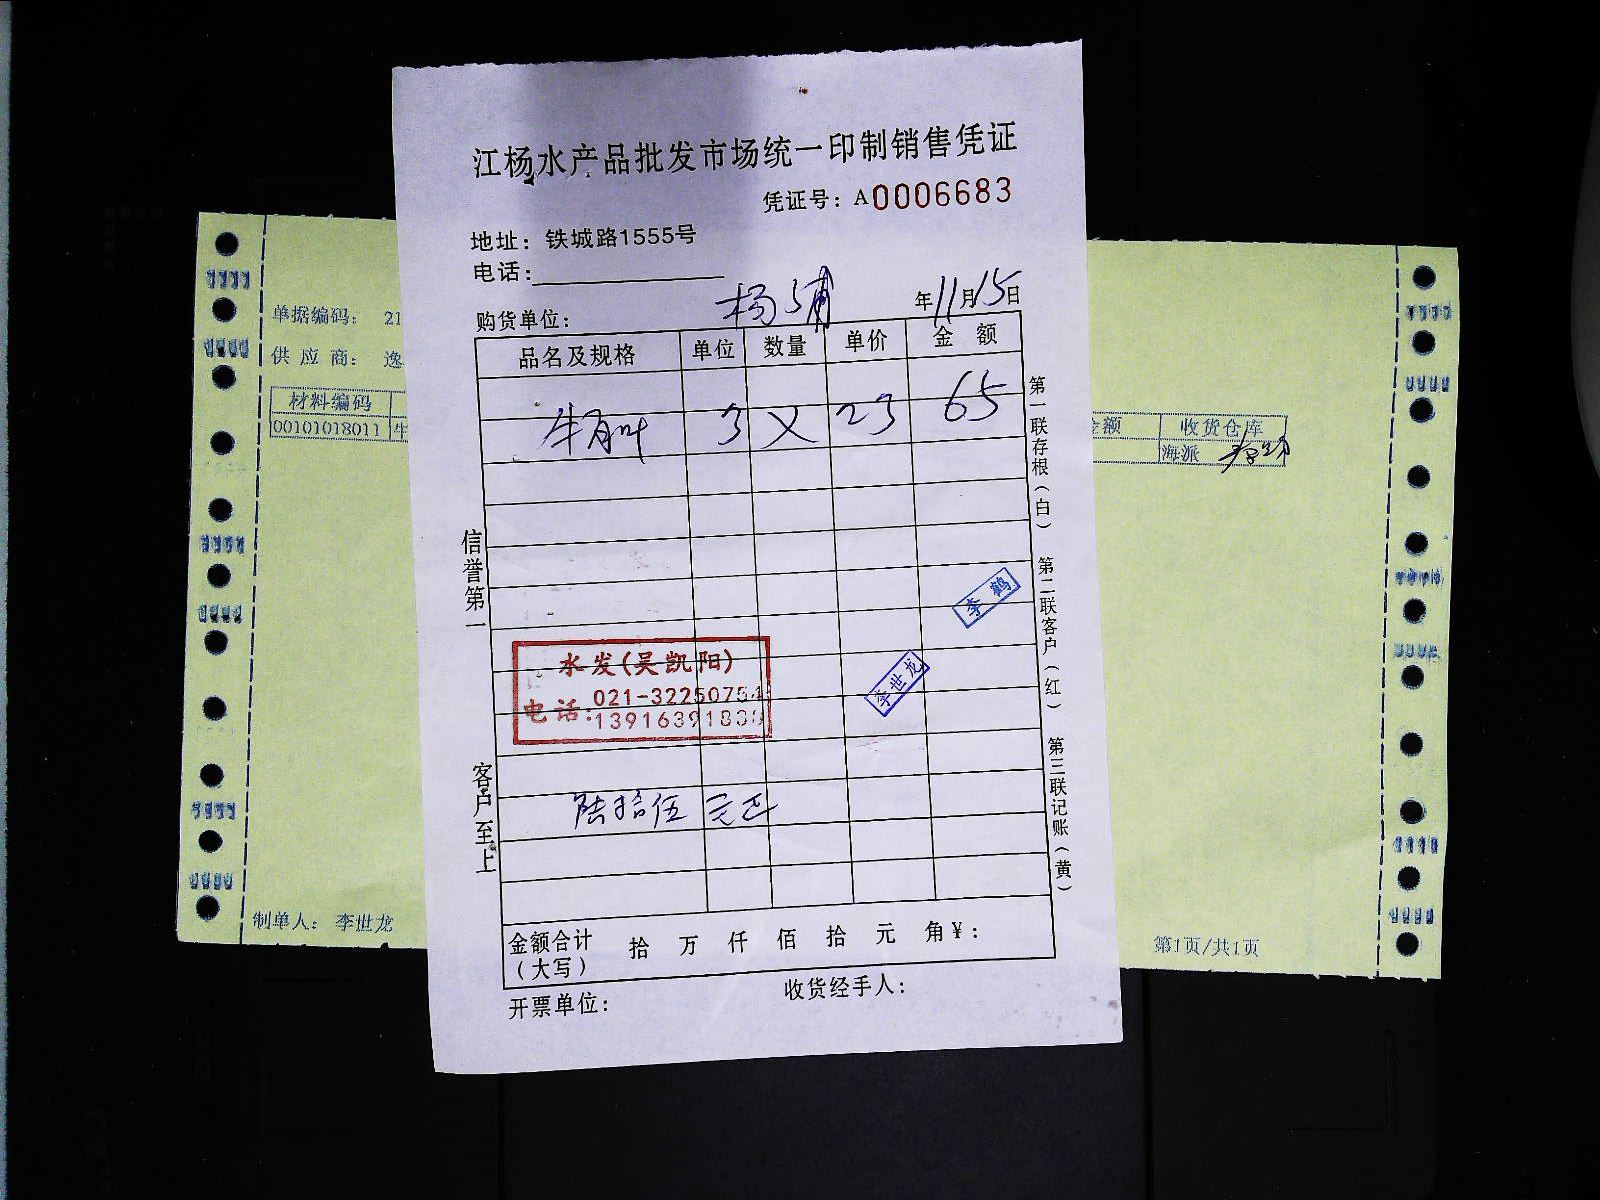 江杨水产品批发市场统一印制销售凭证
凭证号：A0006683
地址：铁城路1555号
电话：
购货单位： 杨浦 年11月15日
品名及规格 单位 数量 单价 金额
牛 3 × 23 65
水发(吴凯阳)
电话：021-3225075
139163918
李鹤
李世龙
陆拾伍元正
金额合计（大写） 拾 万 仟 佰 拾 元 角¥：
开票单位： 收货经手人：
信誉第一
客户至上
第一联存根（白）
第二联客户（红）
第三联记账（黄）
单据编码： 21
供应商： 逸
材料编码
00101018011 牛
制单人： 李世龙
金额 收货仓库
海派
第1页/共1页